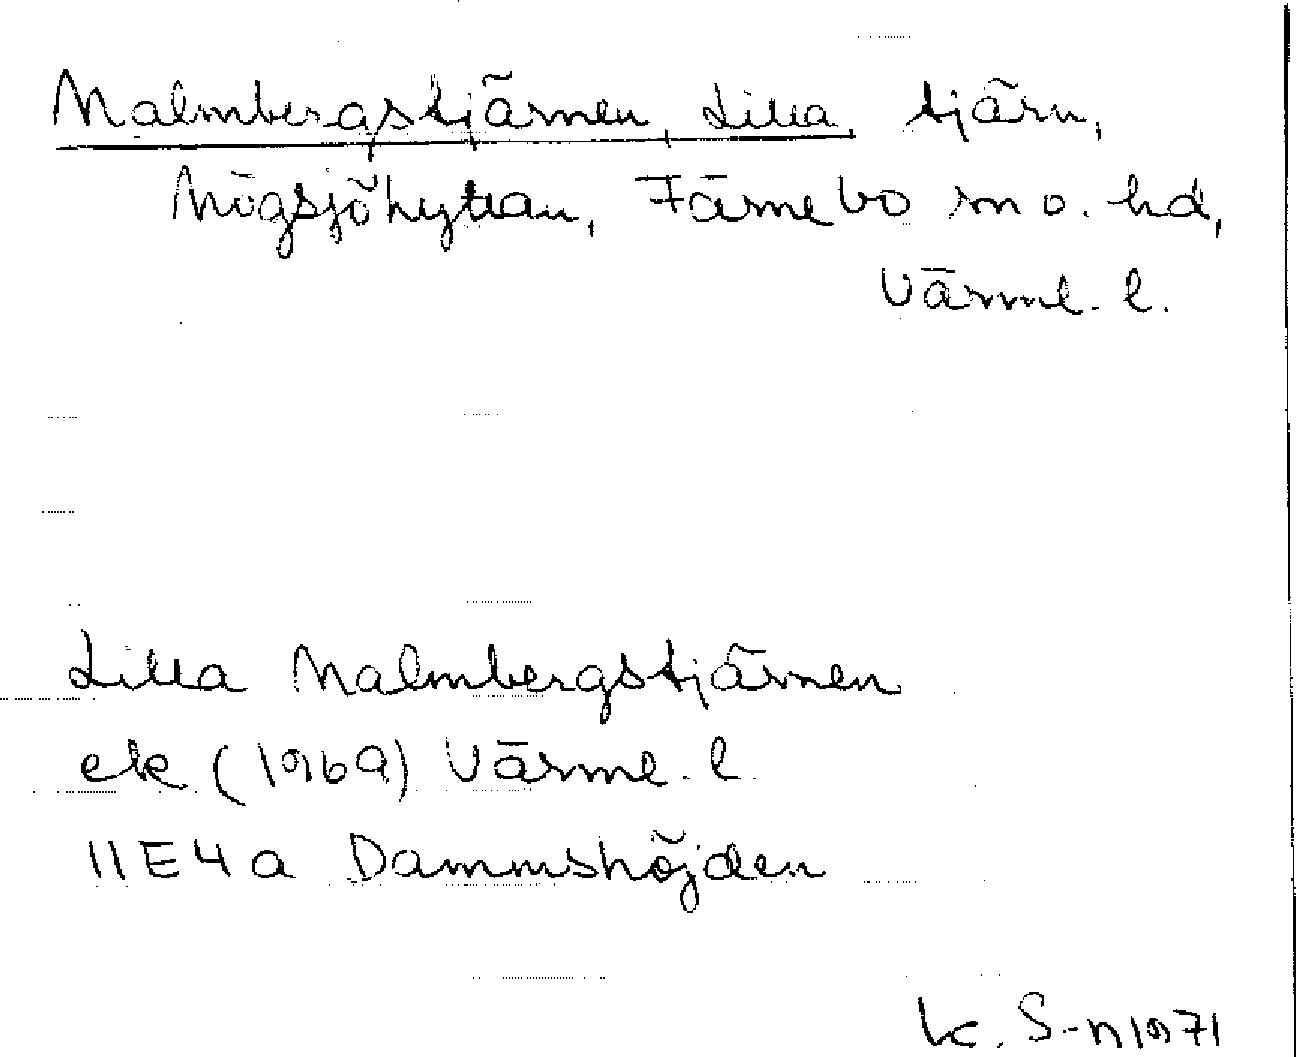 Malmbergstjärnen, Lilla tjärn,
Mögsjöhyttan, Färnebo sn o. hd,
Värml. l.
Lilla Malmbergstjärnen
ek (1969) Värml. l.
11E4a Dammshöjden
k. S-n 1971